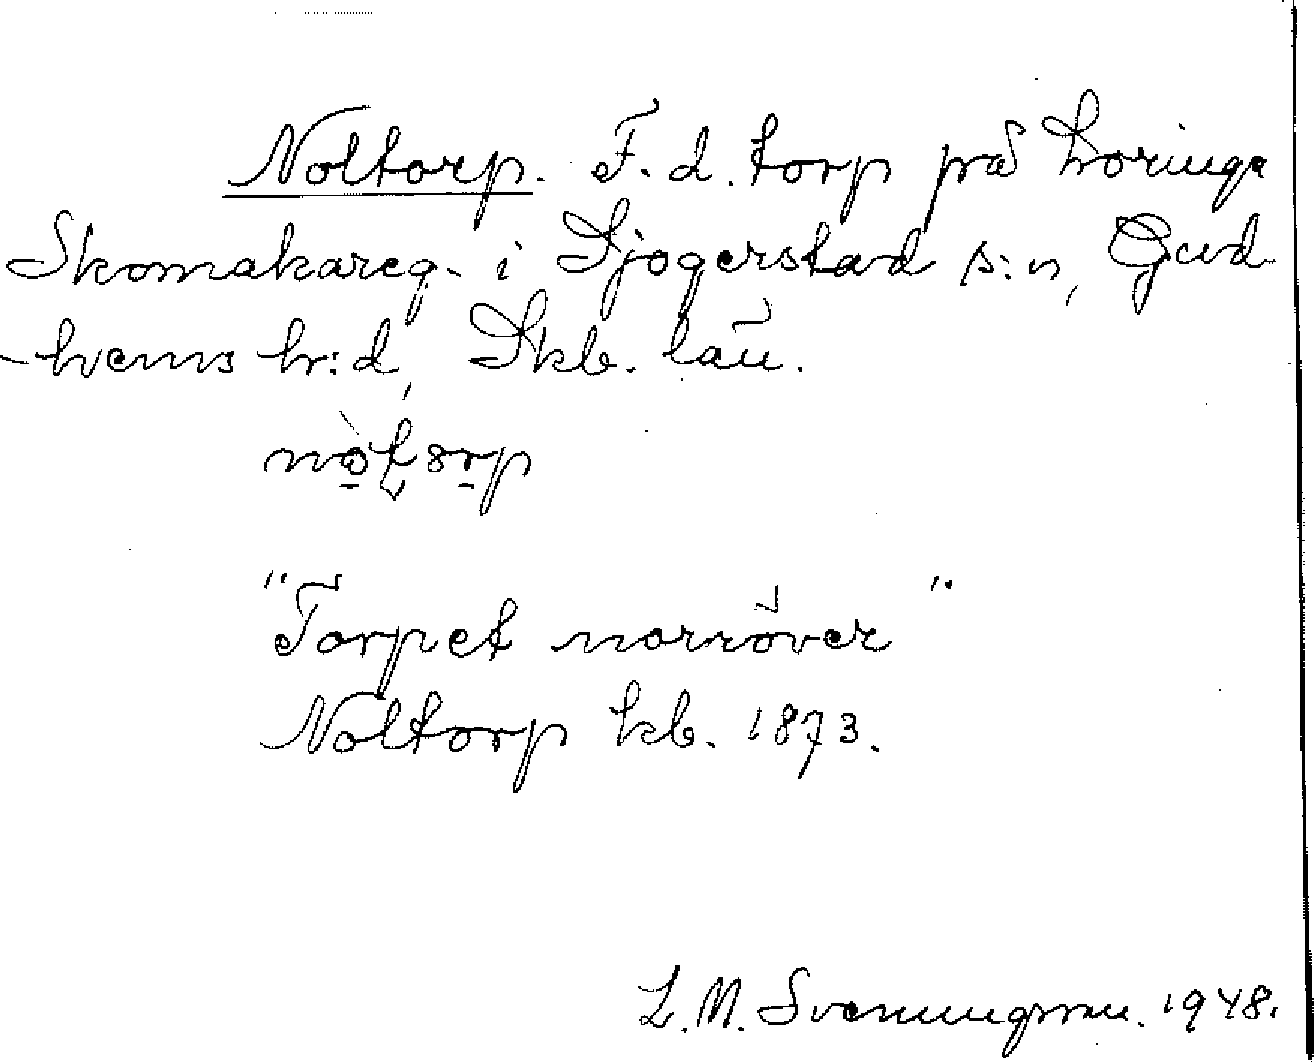 Noltorp. F.d. torp på Horinga
Skomakareg. i Sjogerstad s:n, Gud
-hems hr:d, Skb. län.
"Torpet norröver"
Noltorp kb. 1873.
L.M. Svenungsson. 1948.